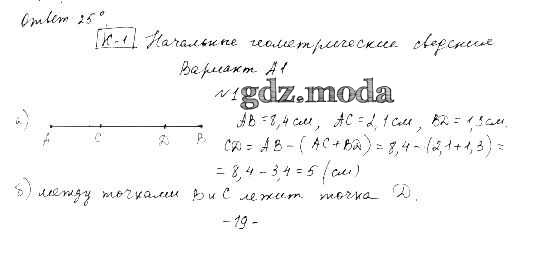 Ответ 25°
К-1 Начальные геометрические сведения
Вариант А1
№1
gdz.moda
а)
A C D B
AB = 8,4 см, AC = 2,1 см, BD = 1,3 см.
CD = AB - (AC + BD) = 8,4 - (2,1 + 1,3) =
= 8,4 - 3,4 = 5 (см)
б) между точками В и С лежит точка D.
- 19 -